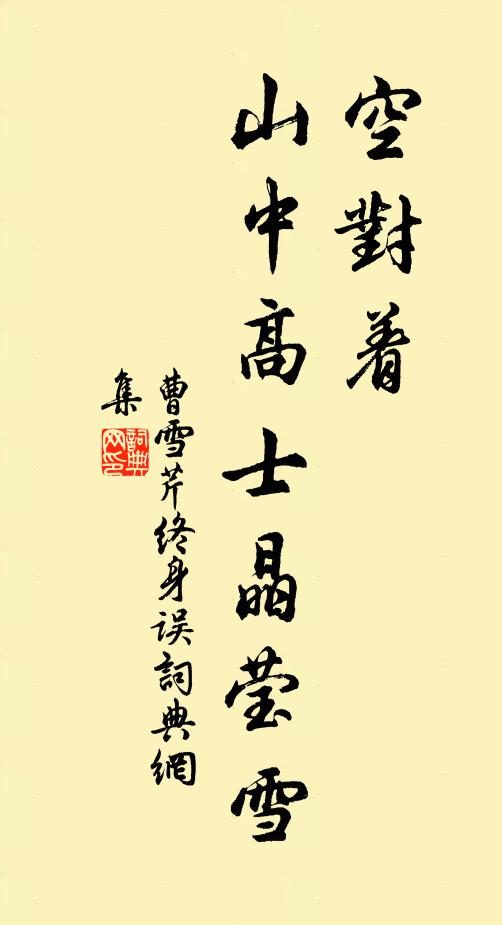 空對着
山中高士晶莹雪
曹雪芹终身误詞典網
集
詞典
网印